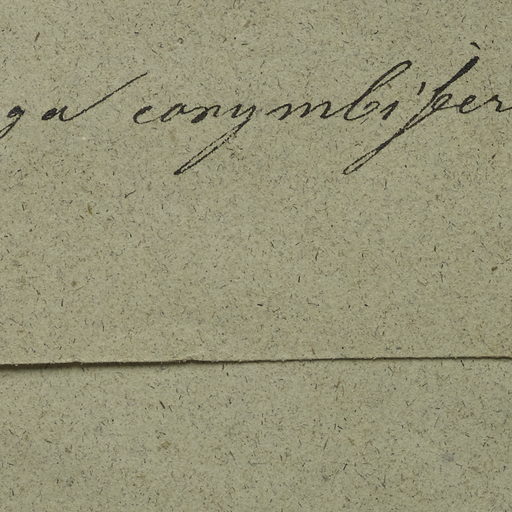 ga corymbifer